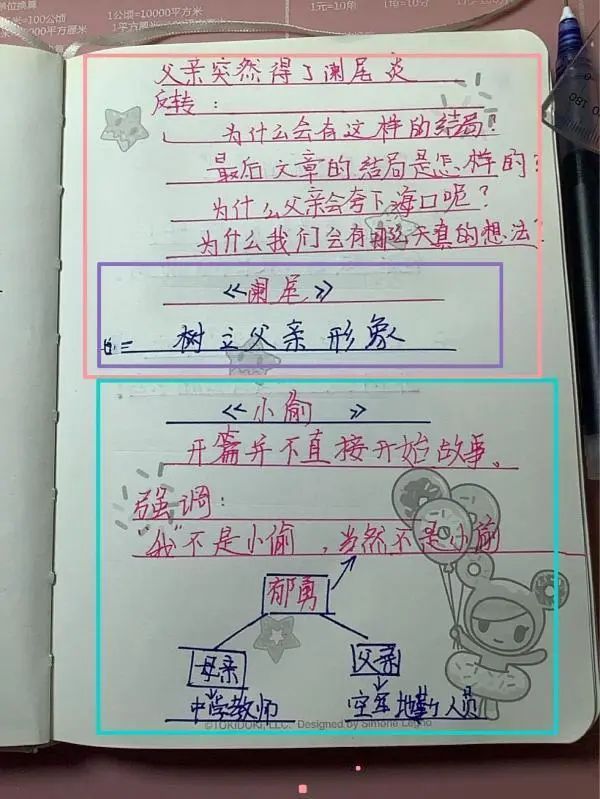 米=100公顷
1公顷=10000平方厘米
1平方厘米=
1元=10角
父亲突然得了阑尾炎
反转：
为什么会有这样的结局？
最后文章的结局是怎样的？
为什么父亲会夸下海口呢？
为什么我们会有那么天真的想法？
《阑尾》
树立父亲形象
《小偷》
开篇并不直接开始故事。
强调：
"我"不是小偷，当然不是小偷
郁勇
母亲
父亲
中学教师
空军地勤人员
©TOKIDOKI, LLC. Designed by Simone Legno
180